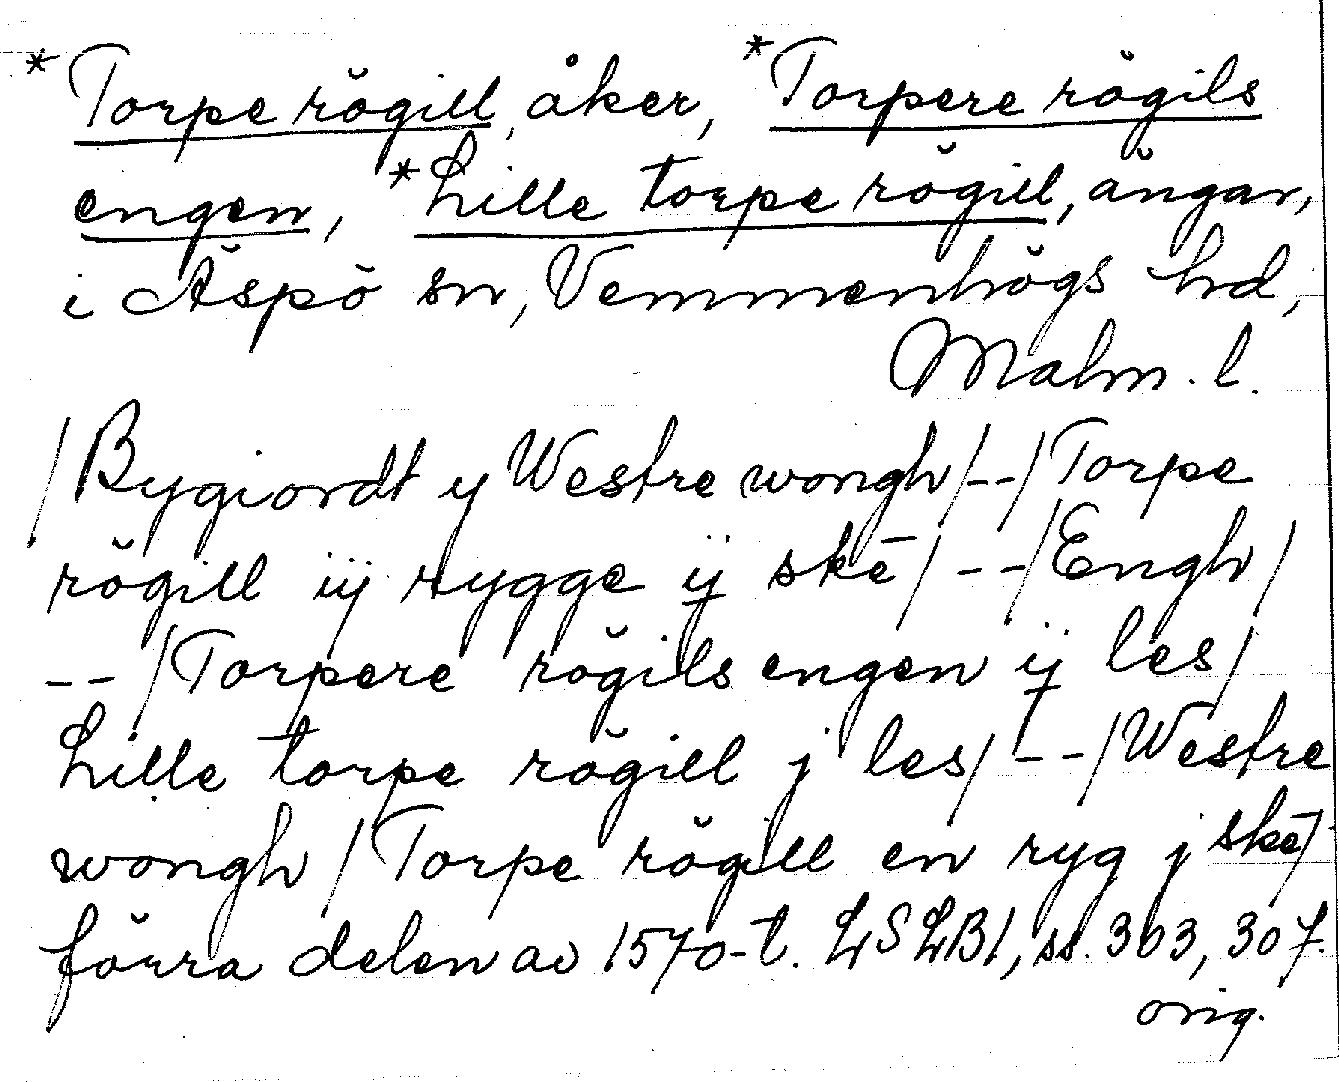 *Torpe rögill, åker, *Torpere rögils
engen, *Lille torpe rögill, ängar,
i Äspö sn, Vemmenhögs hd,
Malm. l.
/Bygiordt y Westre wongh/--/Torpe
rögill iij rygge ij skē/--/Engh/
--/Torpere rögils engen ij les/
Lille torpe rögill j les/--/Westre
wongh/Torpe rögill en ryg j skē/
förra delen av 1570-t. LSLB1, ss. 303, 307.
orig.